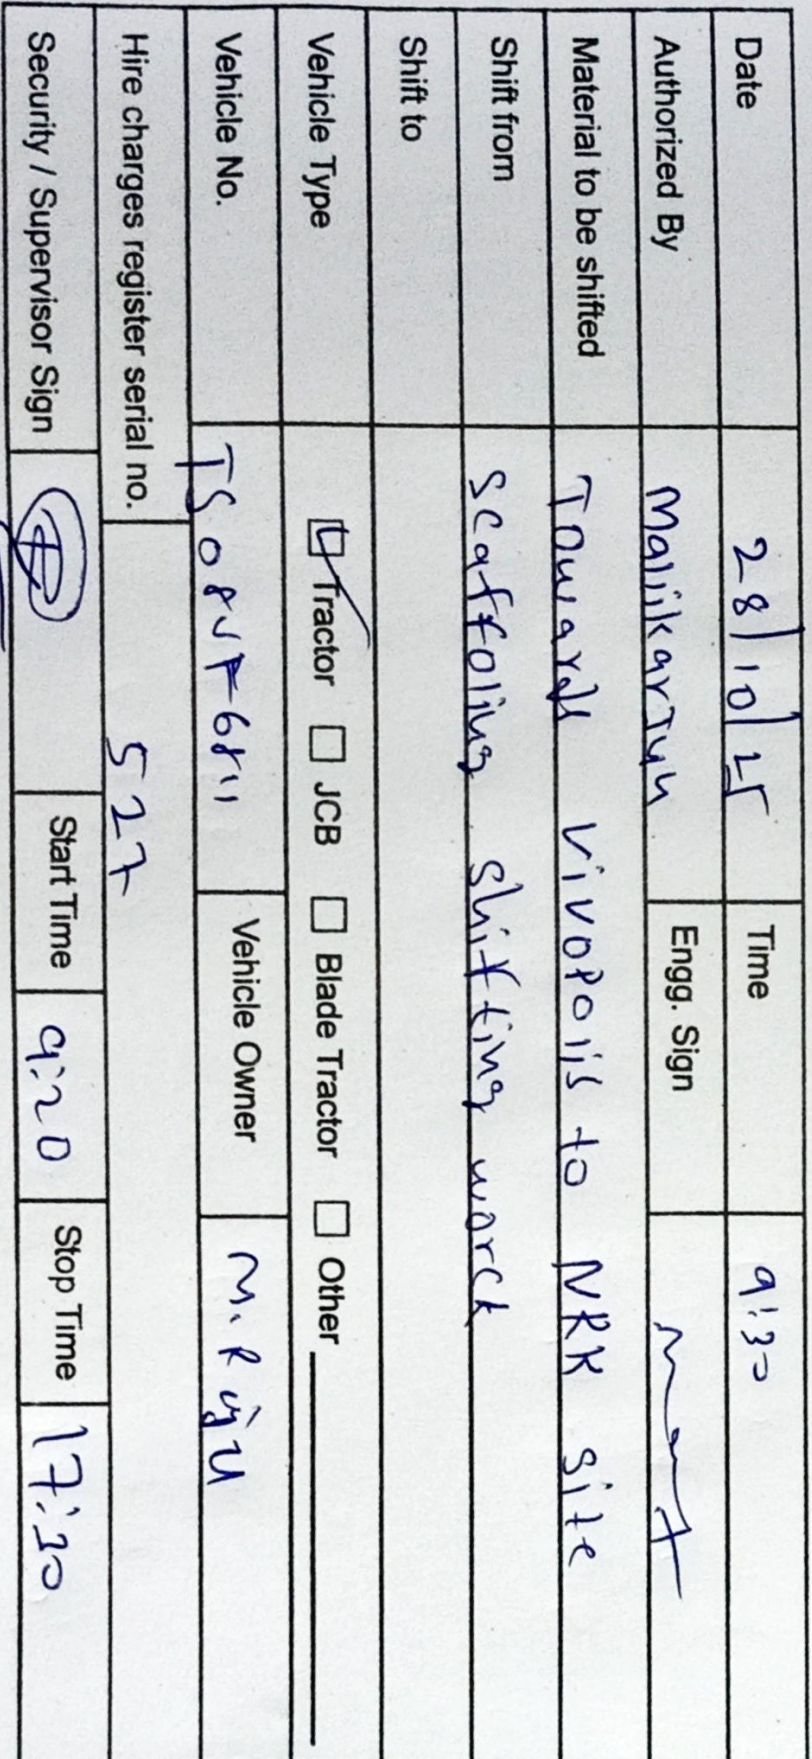 Date 28/10/25 Time 9:30
Authorized By Mallikarjun Engg. Sign
Material to be shifted Towards Vivopolis to NRK site
Shift from scaffoling shifting worck
Shift to
Vehicle Type ☑ Tractor ☐ JCB ☐ Blade Tractor ☐ Other
Vehicle No. TS08UF6811 Vehicle Owner M. Raju
Hire charges register serial no. 527
Security / Supervisor Sign Start Time 9:20 Stop Time 17:30